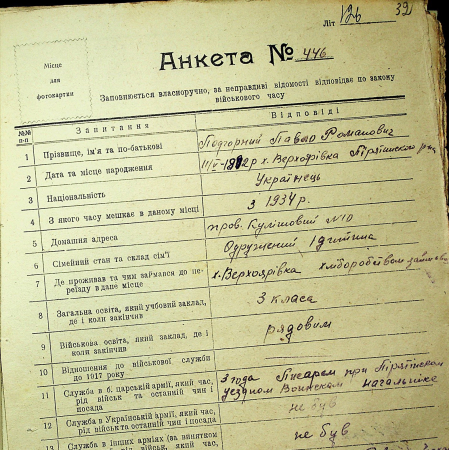 Літ 126 39
Місце
для
фотокартки
Анкета № 446
Заповнюється власноручно, за неправдиві відомості відповідає по закону
військового часу
№№ п-п Запитання Відповіді
1 Прізвище, ім'я та по-батькові Подгорний Павло Романович
2 Дата та місце народження х. Верхоярівка Пірятинського
3 Національність Українець
4 З якого часу мешкає в даному місці З 1934 р.
5 Домашня адреса пров. Кулішовий №10
6 Сімейний стан та склад сім'ї Одружений 1 дитина
7 Де проживав та чим займався до пе-
реїзду в дане місце х. Верхоярівка хліборобством
8 Загальна освіта, який учбовий заклад,
де і коли закінчив 3 класа
9 Військова освіта, який заклад, де і
коли закінчив
10 Відношення до військової служби
до 1917 року рядовим
11 Служба в б. царській армії, який час,
рід військ та останній чин і
посада 3 года Писарем при Пірятинском
уездном Воинском начальнике
12 Служба в Українській армії, який час,
рід військ та останній чин і посада не був
13 Служба в інших арміях (ва винятком
рід військ, який час, не був